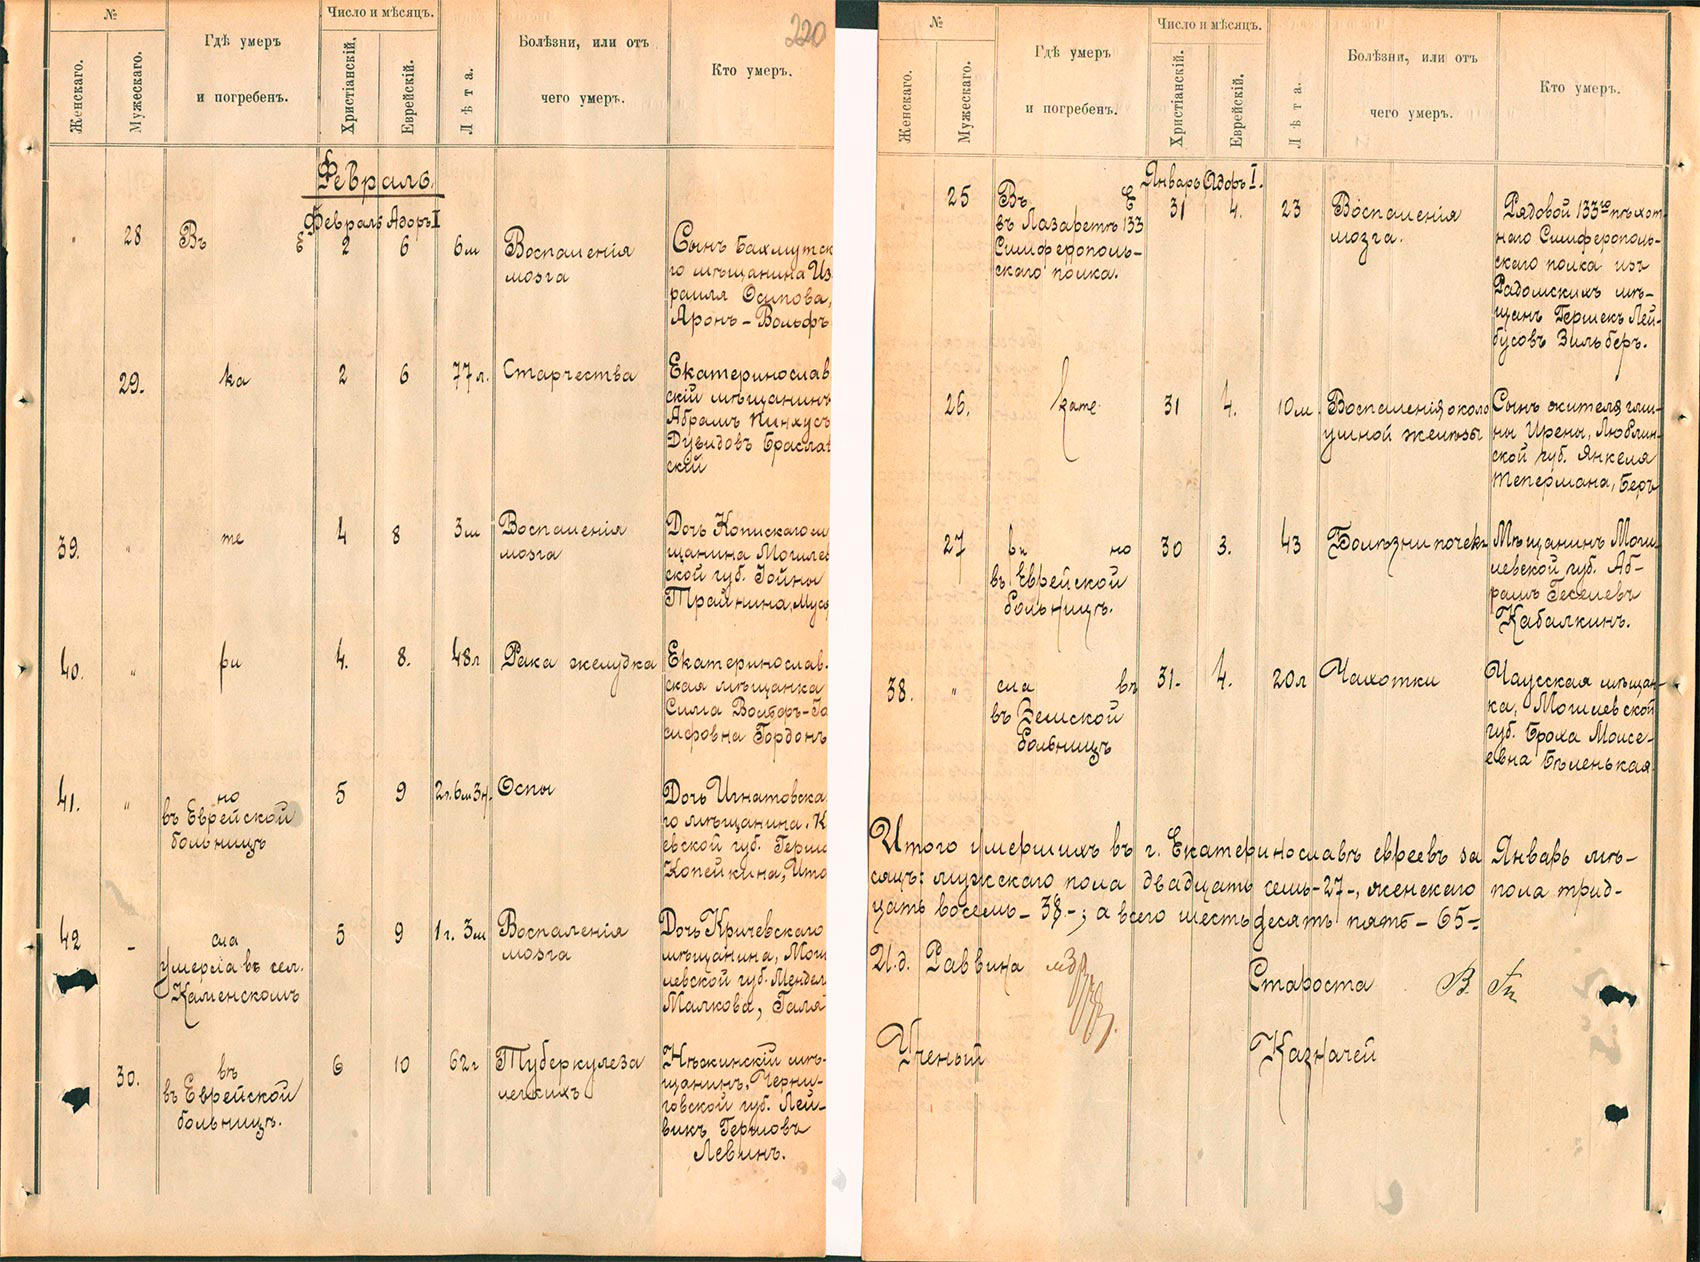 №
Число и мѣсяцъ.
220
Женскаго.
Мужескаго.
Гдѣ умеръ
и погребенъ.
Христіанскій.
Еврейскій.
Лѣта.
Болѣзни, или отъ
чего умеръ.
Кто умеръ.
Февраль.
Февраль Адоръ I
28 Въ Е 2 6 6м Воспаленія
мозга
Сынъ Бахмутск
го мѣщанина Из
раиля Осипова,
Аронъ-Вольфъ
29. ка 2 6 77л. Старчества
Екатеринослав
скій мѣщанинъ
Абрамъ Пинхусъ
Дувидовъ Брасла
скій
39. " те 4 8 3м Воспаленія
мозга
Дочь Копискаго м
щанина Могилев
ской губ. Іойны
Трайнина,
40. " ри 4. 8. 48л Рака желудка
Екатеринослав
ская мѣщанка
Сима Вольфъ-Іо
сифовна Гордонъ
41. " но
въ Еврейской
больницѣ
5 9 2г. 6м 3н. Оспы
Дочь Игнатовска
го мѣщанина, К
евской губ. Герш
Копейкина,
42 - сла
умерла въ сел.
Каменскомъ
5 9 1г. 3м Воспаленія
мозга
Дочь Кричевскаго
мѣщанина, Моги
левской губ. Мендел
Малкова, Галя
30. въ
въ Еврейской
больницѣ.
6 10 62г Туберкулеза
легкихъ
Нѣжинскій мѣ-
щанинъ, Черни-
говской губ. Лей-
викъ Гершовъ
Левинъ.
№
Число и мѣсяцъ.
Женскаго.
Мужескаго.
Гдѣ умеръ
и погребенъ.
Христіанскій.
Еврейскій.
Лѣта.
Болѣзни, или отъ
чего умеръ.
Кто умеръ.
Январь Адоръ I.
25 Въ Е
въ Лазаретѣ 133
Симферополь-
скаго полка.
31 4. 23 Воспаленія
мозга.
Рядовой 133го пѣхот
наго Симферополь-
скаго полка изъ
Радомскихъ мѣ-
щанъ Гершекъ Лей-
бусовъ Зильберъ.
26. кате- 31 4. 10м Воспаленія около
ушной железы
Сынъ жителя гми-
ны Ирены, Люблин-
ской губ. Янкеля
Тепермана, Беръ
27 ри но
въ Еврейской
больницѣ.
30 3. 43 Болѣзни почекъ
Мѣщанинъ Моги-
левской губ. Аб-
рамъ Геселевъ
Кабалкинъ.
38. " сла въ
въ Земской
больницѣ
31- 4. 20л Чахотки
Чаусская мѣщан-
ка, Могилевской
губ. Броха Моисе-
евна Бѣленькая
Итого умершихъ въ г. Екатеринославѣ евреевъ за Январь мѣ-
сяцъ: мужскаго пола двадцать семь-27-, женскаго пола трид-
цать восемь-38-; а всего шестьдесятъ пять-65-
И.д. Раввина
Староста
Ученый
Казначей